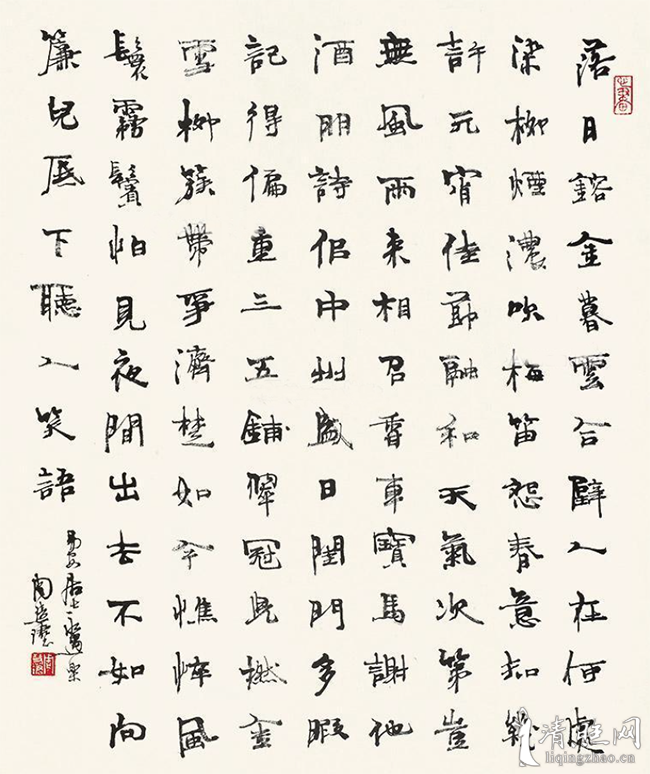 落日鎔金暮雲合璧人在何處
染柳煙濃吹梅笛怨春意知幾
許元宵佳節融和天氣次第豈
無風雨來相召香車寶馬謝他
酒朋詩侶中州盛日閨門多暇
記得偏重三五鋪翠冠兒撚金
雪柳簇帶爭濟楚如今憔悴風
鬟霧鬢怕見夜間出去不如向
簾兒底下聽人笑語
易安居士永遇樂
周慧珺
清照网
liqingzhao.cc